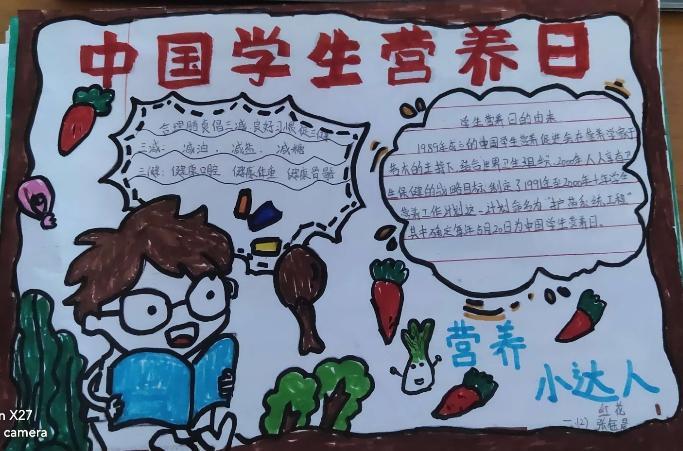 中国学生营养日
合理膳食倡三减 良好习惯促三健
三减: 减油、减盐、减糖
三健: 健康口腔 健康体重 健康骨骼
学生营养日的由来
1989年成立的中国学生营养促进会在
的支持下,结合世界卫生组织“2000年人人享有卫
生保健的战略目标,制定了1991年至2000年
营养工作计划这一计划命名为“护苗系统工程”
其中确定每年5月20日为中国学生营养日。
营养
小达人
红花
一(2) 张钰
n X27
camera